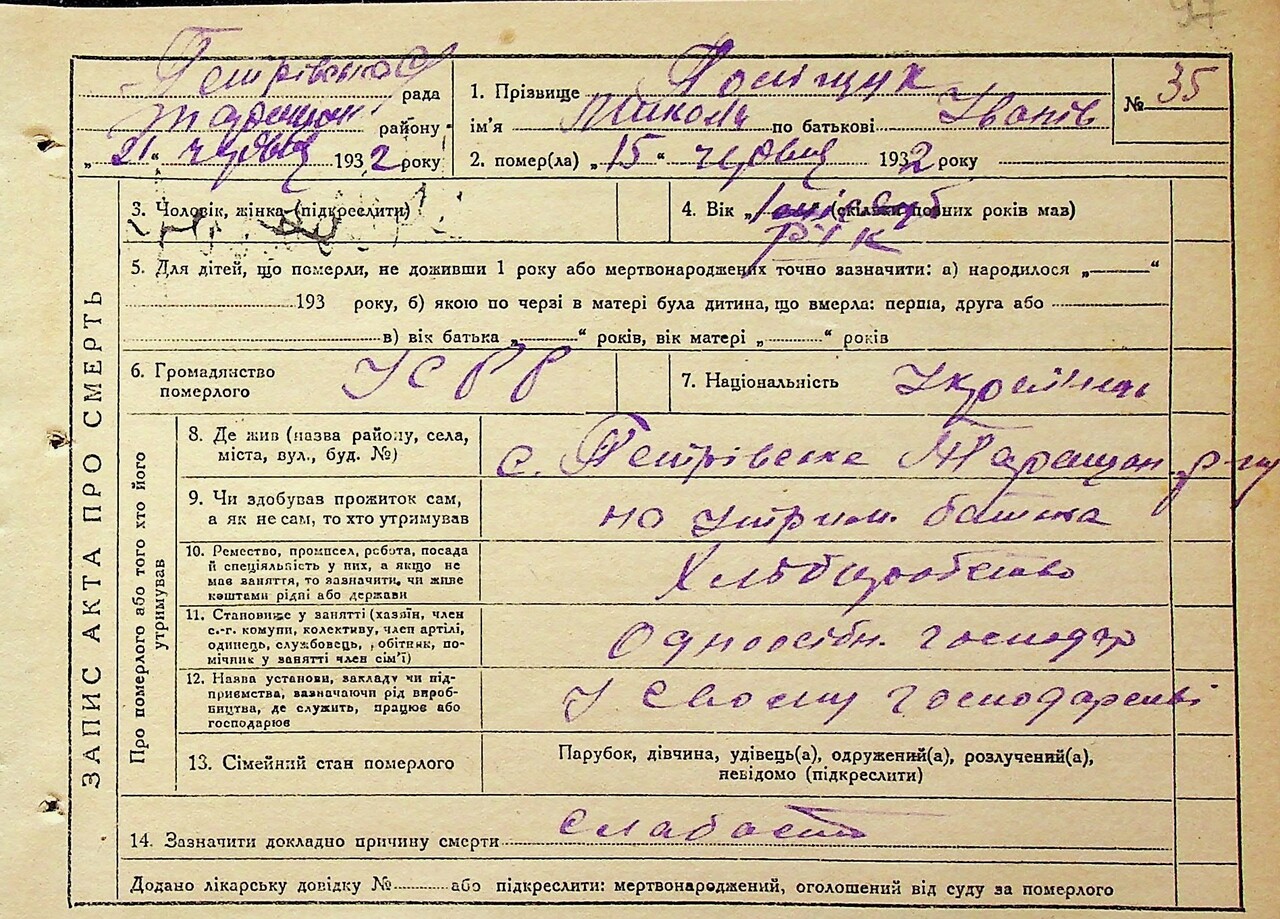 97
Петрівська рада
Таращан району
„21“ червня 1932 року
1. Прізвище Поліщук
ім'я Микола по батькові Іванів
2. помер(ла) „15“ червня 1932 року
№ 35
3. Чоловік, жінка (підкреслити)
4. Вік „1 (скільки повних років мав)
рік
5. Для дітей, що померли, не доживши 1 року або мертвонароджених точно зазначити: а) народилося „ “
193 року, б) якою по черзі в матері була дитина, що вмерла: перша, друга або
в) вік батька „ “ років, вік матері „ “ років
6. Громадянство
померлого
УСРР
7. Національність Україн
ЗАПИС АКТА ПРО СМЕРТЬ
Про померлого або того хто його
утримував
8. Де жив (назва району, села,
міста, вул., буд. №)
с. Петрівське Таращан. р-ну
9. Чи здобував прожиток сам,
а як не сам, то хто утримував
на утрим. батька
10. Ремество, промисел, робота, посада
й спеціяльність у них, а якщо не
мав заняття, то зазначити, чи живе
коштами рідні або держави
Хліборобство
11. Становище у занятті (хазяїн, член
с.-г. комуни, колективу, член артілі,
одинець, службовець, робітник, по-
мічник у занятті член сім'ї)
Одноосібн. господар
12. Назва установи, закладу чи під-
приємства, зазначаючи рід вироб-
ництва, де служить, працює або
господарює
У своєму господарстві
13. Сімейний стан померлого
Парубок, дівчина, удівець(а), одружений(а), розлучений(а),
невідомо (підкреслити)
14. Зазначити докладно причину смерти слабость
Додано лікарську довідку № або підкреслити: мертвонароджений, оголошений від суду за померлого